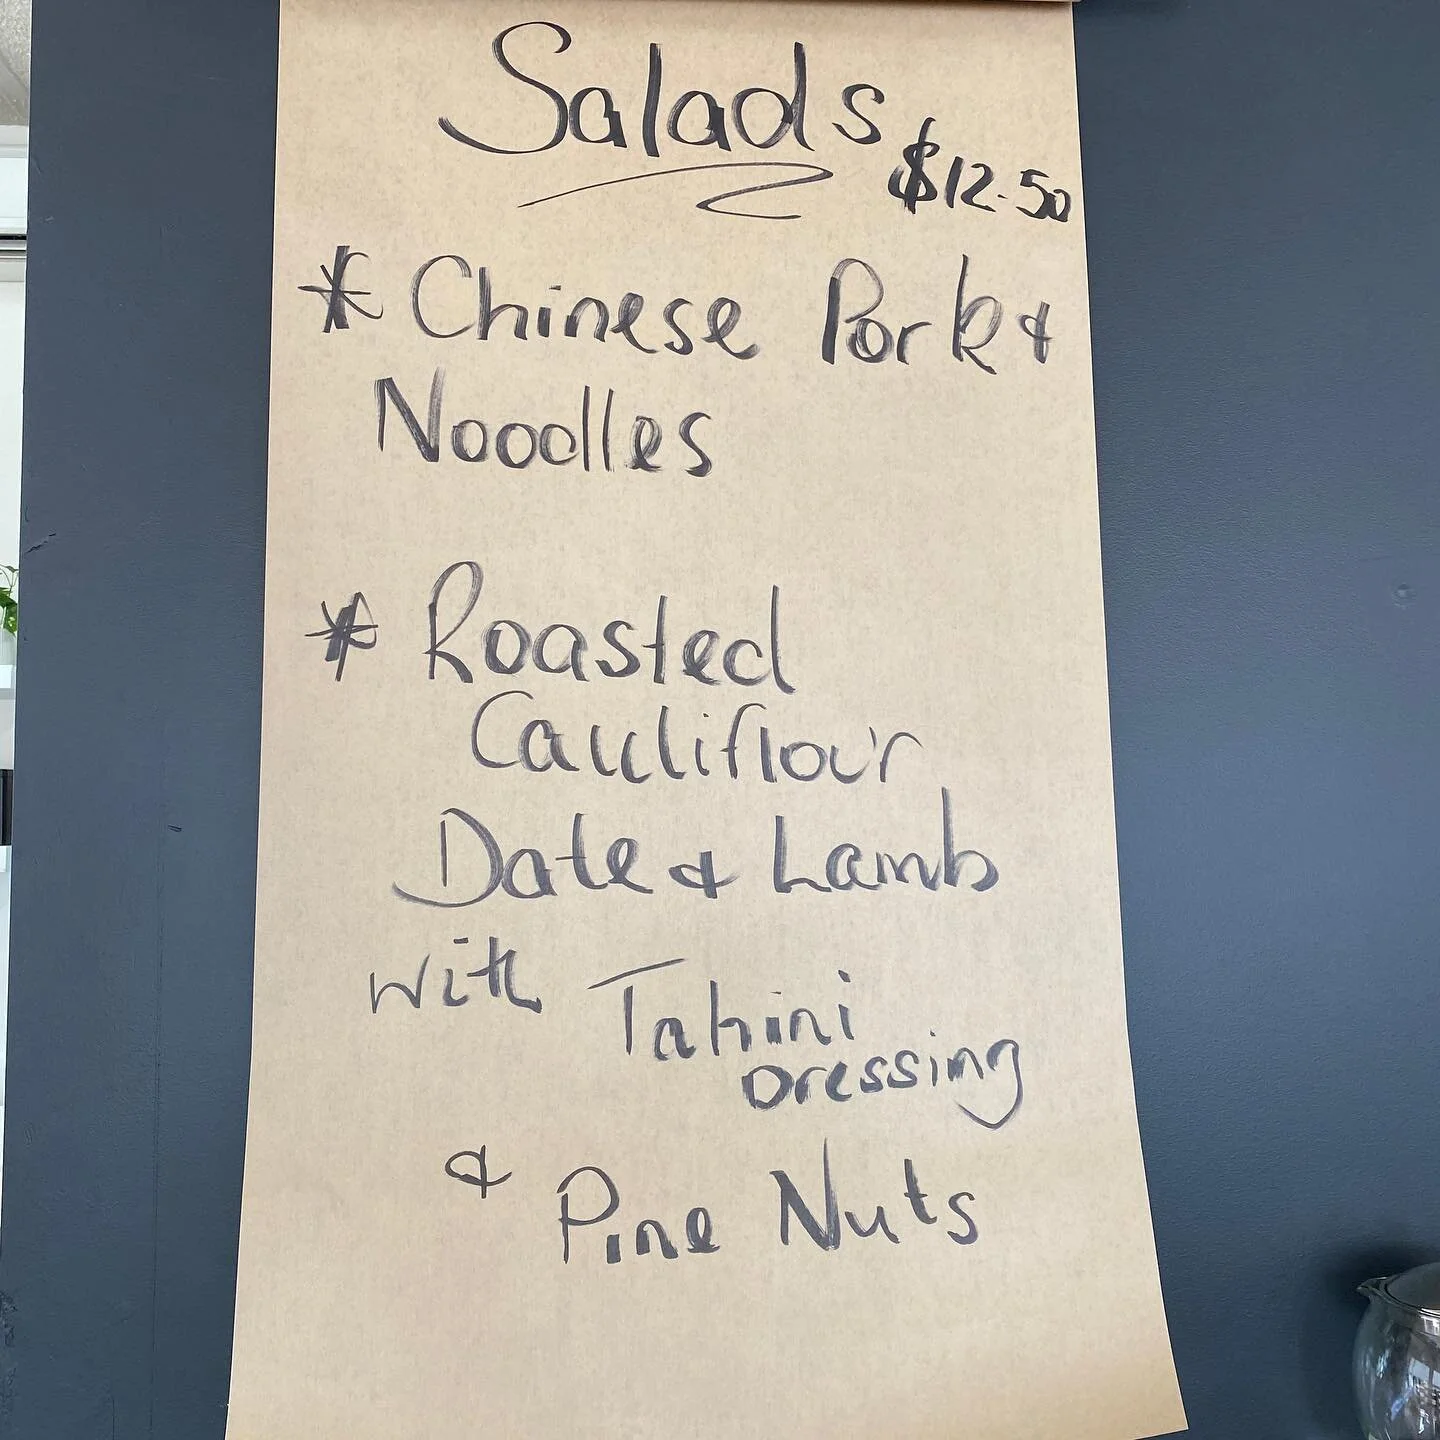 Salads
$12.50
* Chinese Pork &
Noodles
* Roasted
Cauliflour
Date & Lamb
with Tahini
Dressing
& Pine Nuts